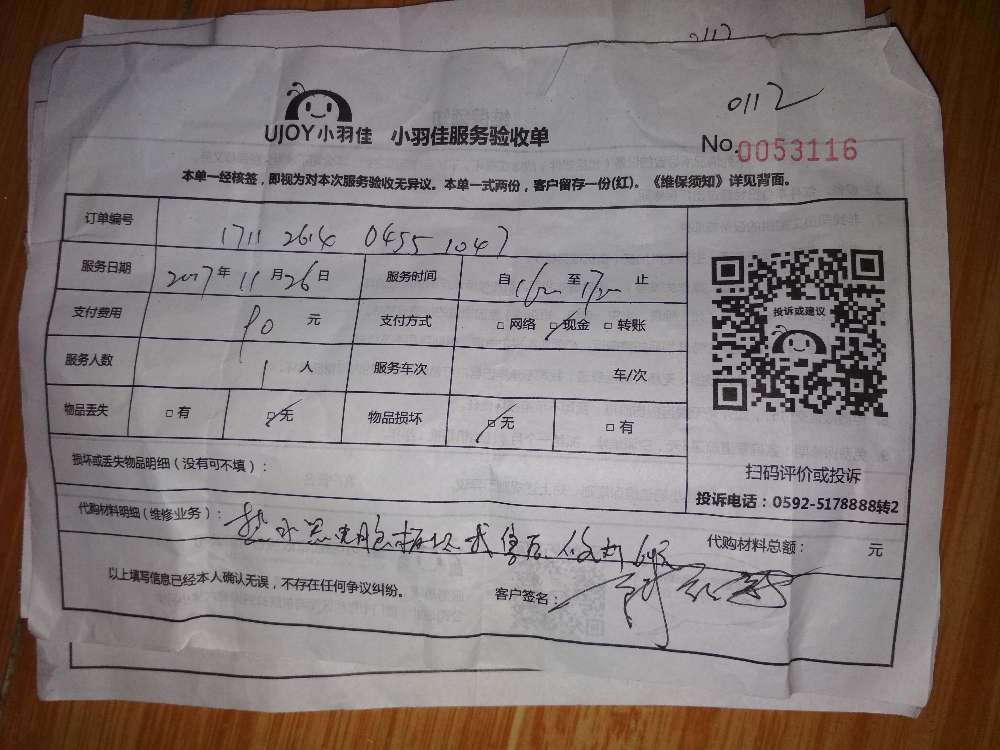 0112
UJOY小羽佳 小羽佳服务验收单
No.0053116
本单一经核签，即视为对本次服务验收无异议。本单一式两份，客户留存一份(红)。《维保须知》详见背面。
订单编号 1711 2614 0455 1047
服务日期 2017年 11月26日 服务时间 自 至 止
支付费用 90元 支付方式 □网络 □现金 □转账
服务人数 1人 服务车次 车/次
物品丢失 □有 □无 物品损坏 □无 □有
投诉或建议
扫码评价或投诉
投诉电话：0592-5178888转2
损坏或丢失物品明细（没有可不填）：
代购材料明细（维修业务）： 热水器 售后 代购材料总额： 元
以上填写信息已经本人确认无误，不存在任何争议纠纷。 客户签名：